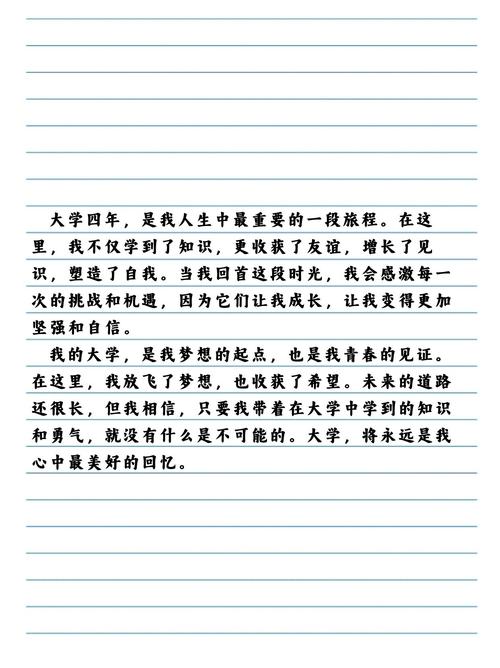 大学四年，是我人生中最重要的一段旅程。在这
里，我不仅学到了知识，更收获了友谊，增长了见
识，塑造了自我。当我回首这段时光，我会感激每一
次的挑战和机遇，因为它们让我成长，让我变得更加
坚强和自信。
我的大学，是我梦想的起点，也是我青春的见证。
在这里，我放飞了梦想，也收获了希望。未来的道路
还很长，但我相信，只要我带着在大学中学到的知识
和勇气，就没有什么是不可能的。大学，将永远是我
心中最美好的回忆。